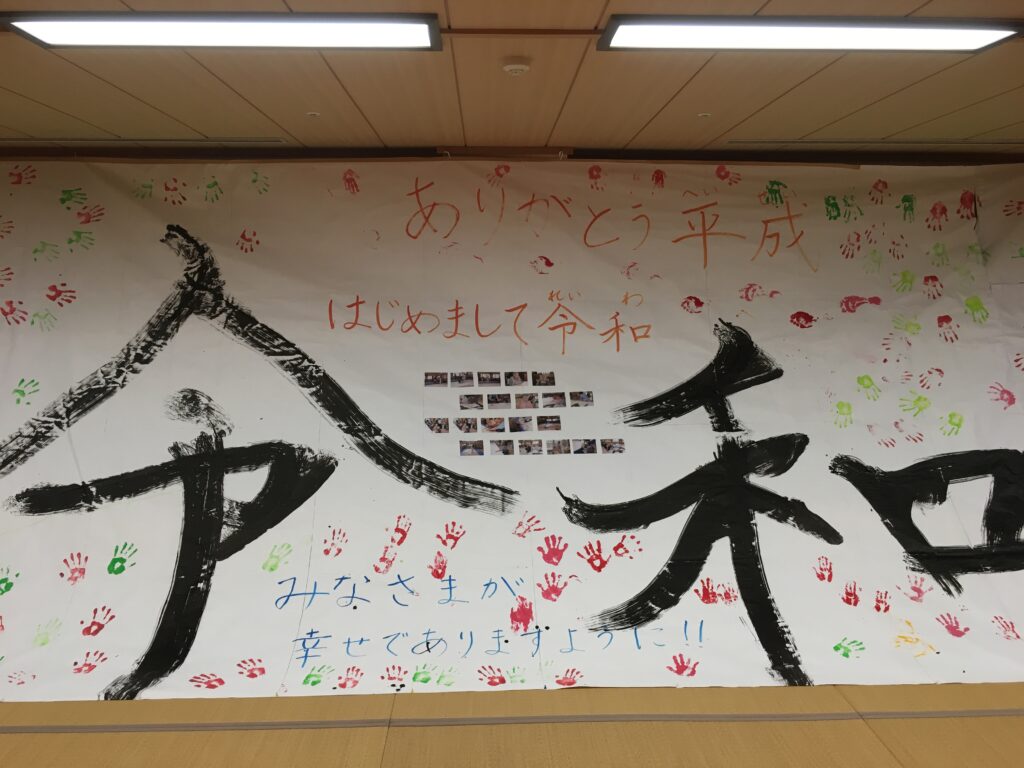 ありがとう平成
へい
はじめまして令和
れい わ
令和
みなさまが
幸せでありますように!!